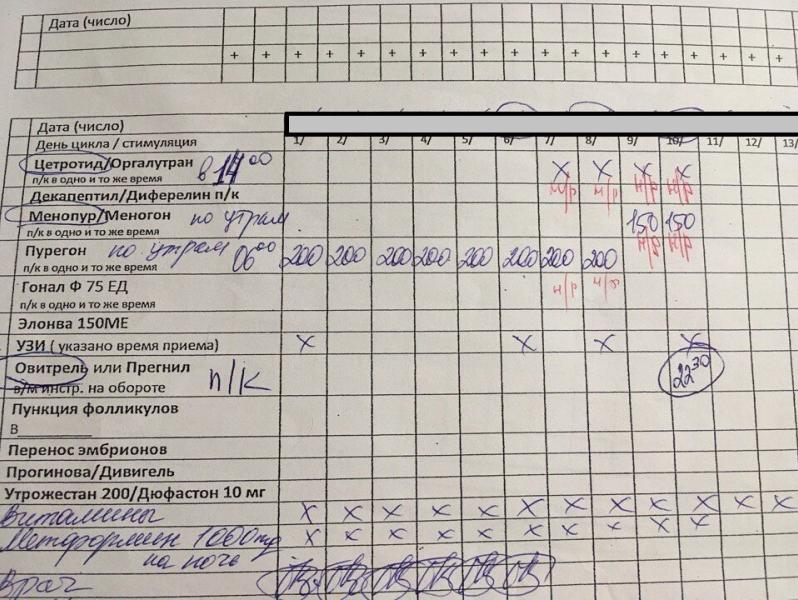 Дата (число)
+ + + + + + + + + + + + + + + + + +
Дата (число)
День цикла / стимуляция 1/ 2/ 3/ 4/ 5/ 6/ 7/ 8/ 9/ 10/ 11/ 12/ 13/
Цетротид/Оргалутран в 14 00 x x x x
п/к в одно и то же время н/р н/р н/р н/р
Декапептил/Диферелин п/к
Менопур/Меногон по утрам 150 150
п/к в одно и то же время н/р н/р
Пурегон по утрам 06 00 200 200 200 200 200 200 200 200
п/к в одно и то же время
Гонал Ф 75 ЕД н/р н/р
п/к в одно и то же время
Элонва 150МЕ
УЗИ ( указано время приема) x x x x
Овитрель или Прегнил п/к 22 30
в/м инстр. на обороте
Пункция фолликулов
В__________
Перенос эмбрионов
Прогинова/Дивигель
Утрожестан 200/Дюфастон 10 мг
Витамины x x x x x x x x x x x x
Метформин 1000 x x x x x x x x x x
на ночь
Врач